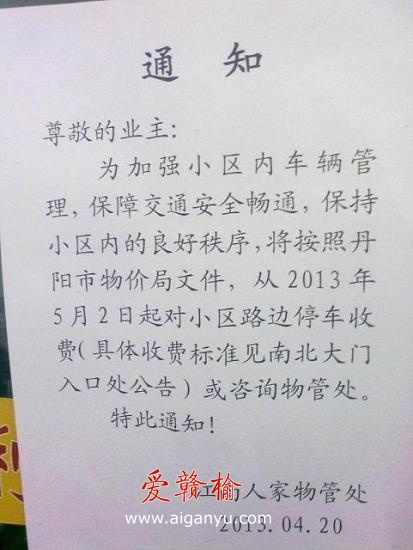 通 知
尊敬的业主:
为加强小区内车辆管
理,保障交通安全畅通,保持
小区内的良好秩序,将按照丹
阳市物价局文件,从2013年
5月2日起对小区路边停车收
费(具体收费标准见南北大门
入口处公告)或咨询物管处。
特此通知!
爱赣榆
江南人家物管处
www.aiganyu.com
2013.04.20